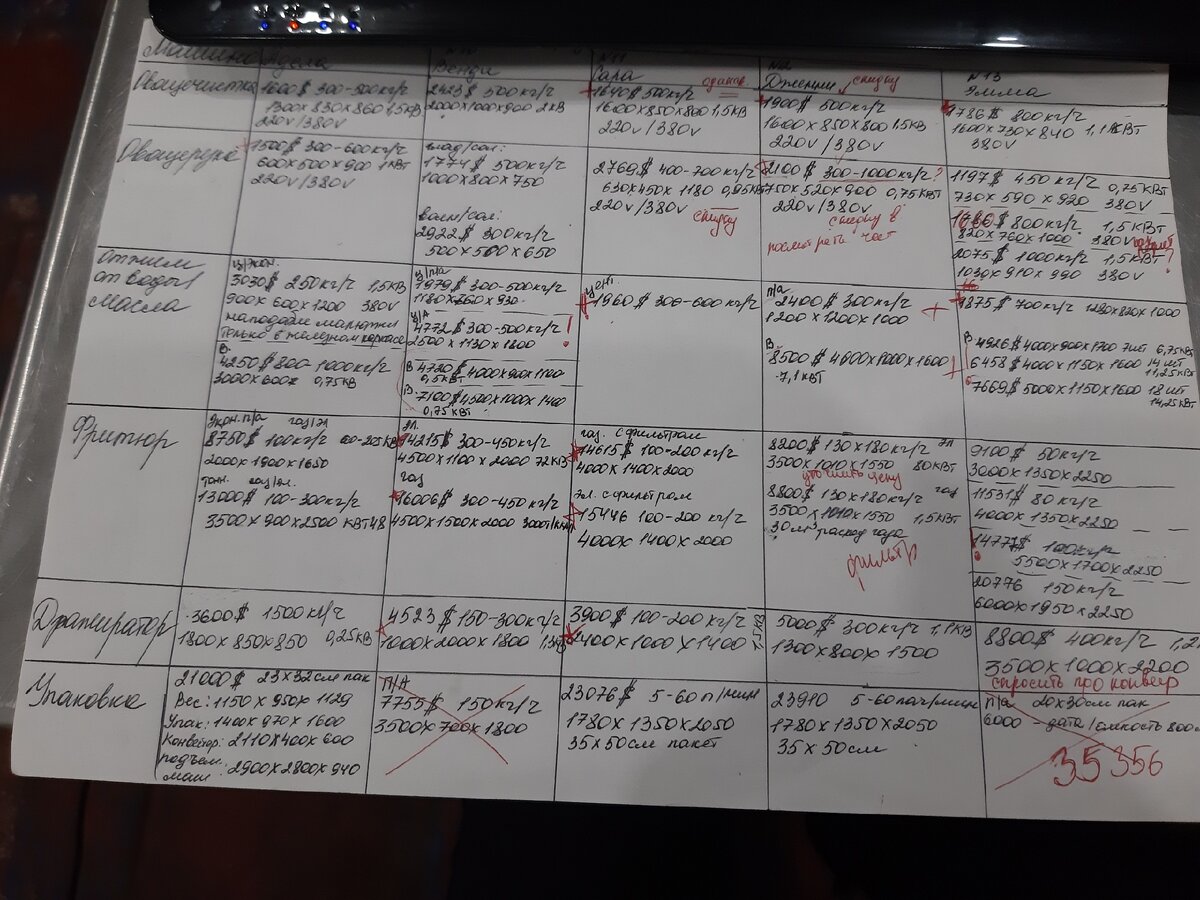 Машина Адела
Венди
N11
Сара
Дженни скидку
N13
Эмма
Овощечистка
1600$ 300-600кг/ч
1300х830х860 1,5кВ
220v/380v
2423$ 500кг/ч
2000х1000х900 2кВ
одинаков
1640$ 500кг/ч
1600х850х800 1,5кВ
220v/380v
1900$ 500кг/ч
1600х850х800 1.5кВ
220v/380v
1786$ 800кг/ч
1600х730х840 1,1кВт
380v
Овощерезка
1500$ 300-600кг/ч
600х500х900 1кВт
220v/380v
1774$ 500кг/ч
1000х800х750
волн/сол:
2922$ 300кг/ч
500х500х650
2769$ 400-700кг/ч
630х450х1180 0,95кВт
220v/380v
скидку
2100$ 300-1000кг/ч?
750х520х900 0,75кВт
220v/380v
скидку в
1197$ 450кг/ч 0,75кВт
730х590х920 380v
1786$ 800кг/ч 1,5кВт
820х760х1000 380v
2075$ 1000кг/ч 1,5кВт
1030х910х990 380v
Отжим
от воды/
масла
ц/экон.
3030$ 250кг/ч 1,5кВ
900х600х1200 380v
только в железном каркасе
В.
4250$ 800-1000кг/ч
3000х600х 0,75кВ
ц/п/а
1979$ 300-500кг/ч
1180х760х930
ц/А
4772$ 300-500кг/ч!
2500х1130х1800
В 4720$ 4000х900х1100
0,5кВт
В. 7100$ 4500х1000х1400
0,75кВт
1960$ 300-600кг/ч
п/а
2400$ 300кг/ч
1200х1200х1000
В
8500$ 4000х1000х1600
7,1кВт
1875$ 700кг/ч 1280х820х1000
В 4926$ 4000х900х1700 7шт 6,75кВт
6458$ 4000х1150х1600 14шт
11,25кВт
7669$ 5000х1150х1600 18шт
14,25кВт
Фритюр
экон.п/а газ/эл
8750$ 100кг/ч
2000х1900х1650
13000$ 100-300кг/ч
3500х900х2500 кВт48
эл.
14215$ 300-450кг/ч
4500х1100х2000 72кВ
газ
16006$ 300-450кг/ч
4500х1500х2000
газ. с фильтром
14615$ 100-200кг/ч
4000х1400х2000
эл. с фильтром
15446 100-200кг/ч
4000х1400х2000
8200$ 130х180кг/ч эл
3500х1010х1550 80кВт
уточнить цену
8800$ 130х180кг/ч газ
3500х1010х1550 1,5кВт
30м³ расход газа
фильтр
9100$ 50кг/ч
3000х1350х2250
11531$ 80кг/ч
4000х1350х2250
14777$ 100кг/ч
5500х1700х2250
20776 150кг/ч
6000х1950х2250
Дражиратор
3600$ 1500кг/ч
1800х850х850 0,25кВ
4523$ 150-300кг/ч
1000х2000х1800
3900$ 100-200кг/ч
2400х1000х1400
5000$ 300кг/ч 1,1кВ
1300х800х1500
8800$ 400кг/ч
3500х1000х2200
спросить про конвеер
Упаковка
21000$ 23х32см пак
Вес: 1150х950х1129
Упак: 1400х970х1600
Конвейер: 2110х400х600
подъем.
маш. 2900х2800х940
П/А
7755$ 150кг/ч
3500х700х1800
23076$ 5-60п/мин
1780х1350х2050
35х50см пакет
23910 5-60пак/мин
1780х1350х2050
35х50см
п/а 20х30см пак
6000 дата/емкость 800
35356